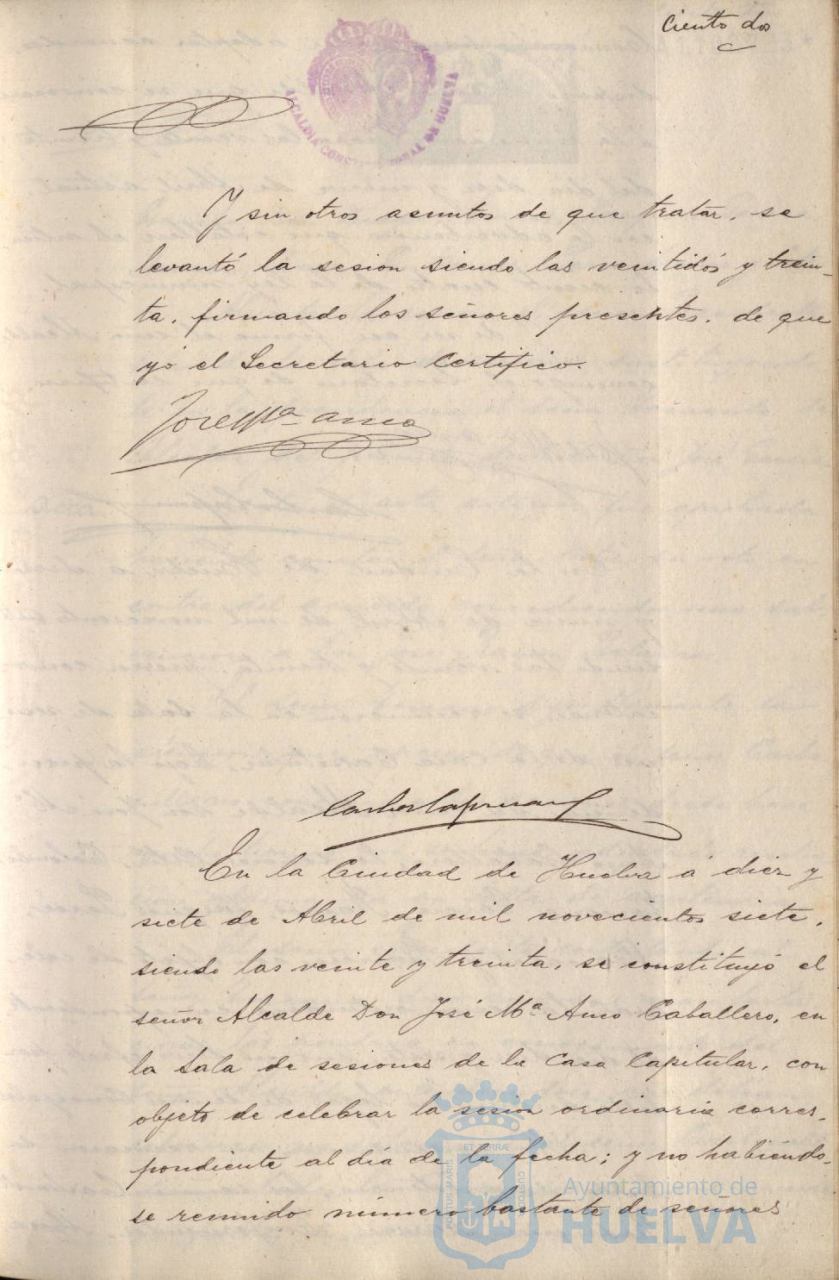 Ciento dos
ALCALDIA CONSTITUCIONAL DE HUELVA
Y sin otros asuntos de que tratar, se
levantó la sesion siendo las veintidós y trein-
ta, firmando los señores presentes, de que
yó el Secretario Certifico.
José Mª Amo
En la Ciudad de Huelva á diez y
siete de Abril de mil novecientos siete,
siendo las veinte y treinta, se constituyó el
señor Alcalde Don José Mª Amo Caballero, en
la Sala de sesiones de la Casa Capitular, con
objeto de celebrar la sesion ordinaria corres-
pondiente al día de la fecha; y no habiéndo-
se reunido número bastante de señores
PORTUS MARIS ET TERRÆ CUSTODIA
Ayuntamiento de
HUELVA